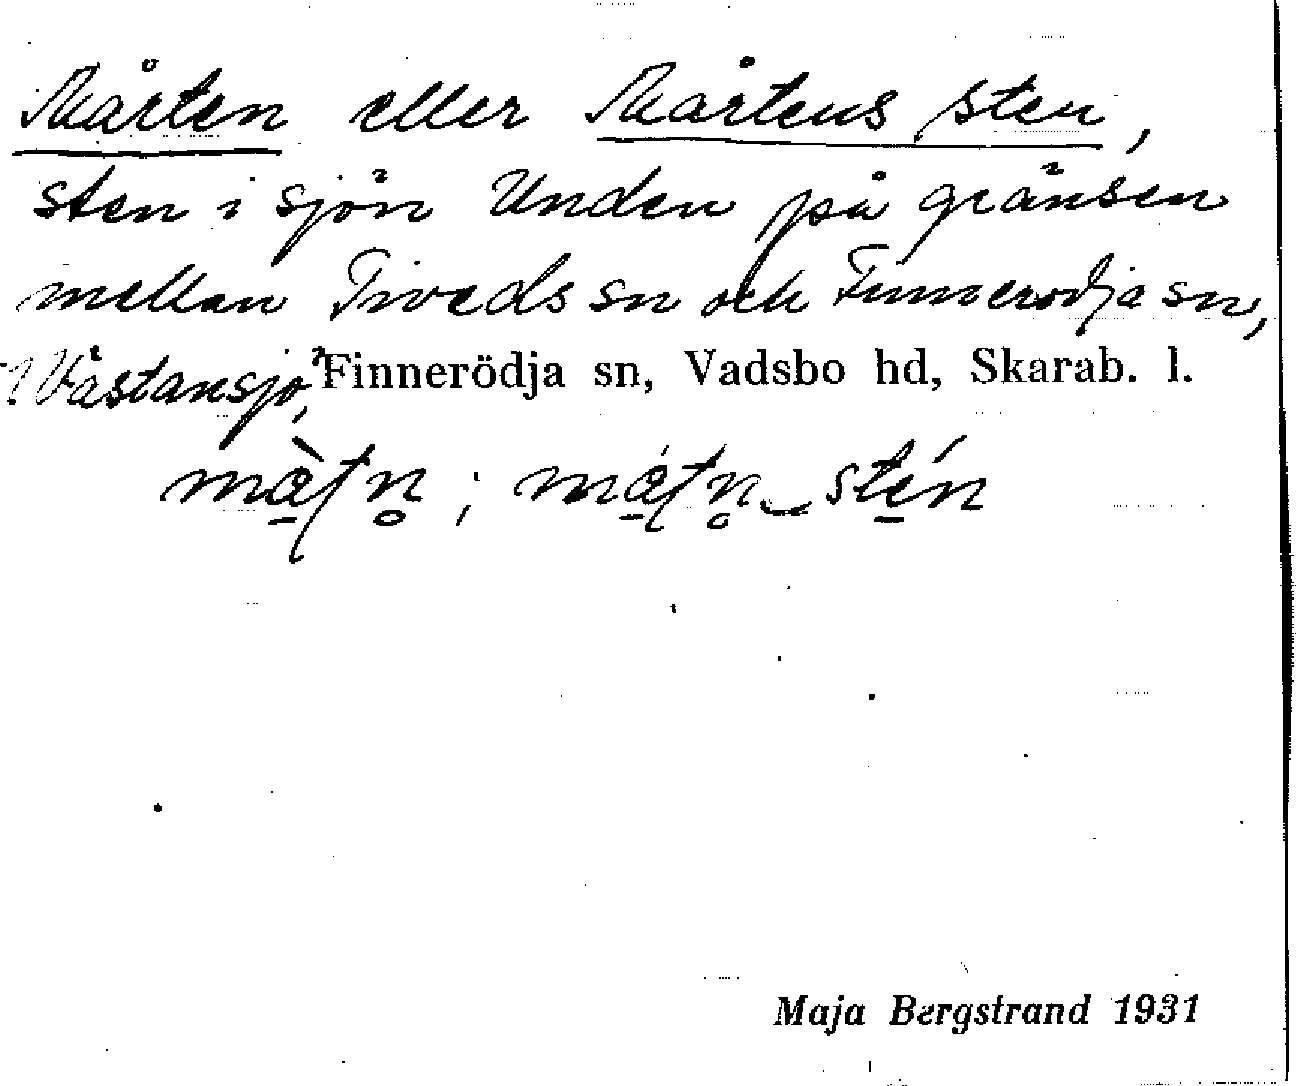 Mårten eller Mårtens sten,
sten i sjön Unden på gränsen
mellan Tiveds sn och Finnerödja sn,
Västansjö, Finnerödja sn, Vadsbo hd, Skarab. l.
Maja Bergstrand 1931